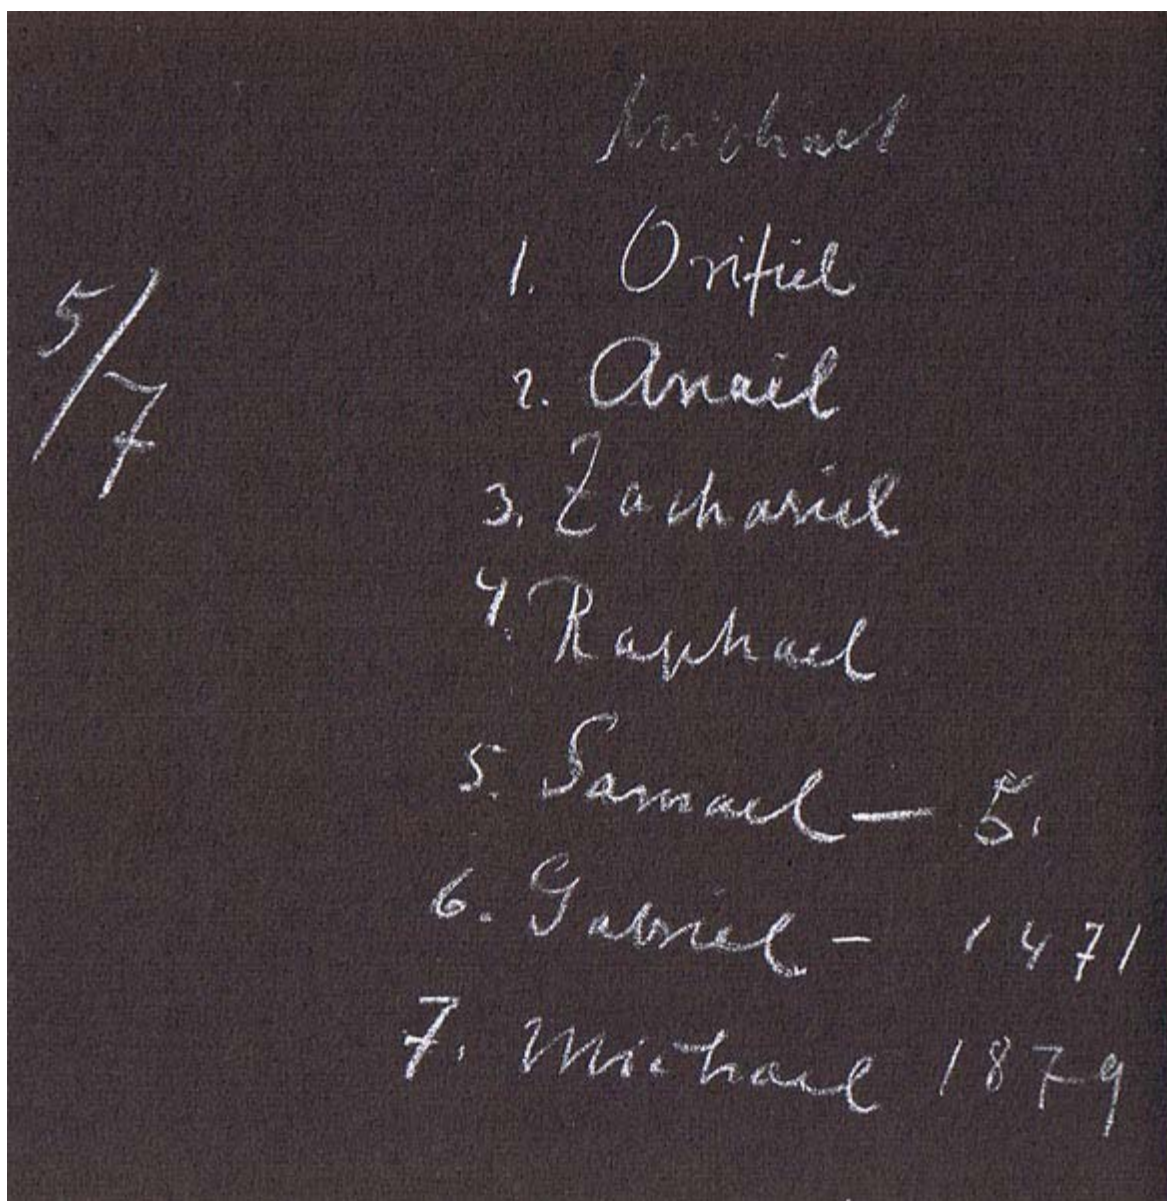 Michael
1. Orifiel
2. Anael
3. Zachariel
5/7
4. Raphael
5. Samael — 5.
6. Gabriel — 1471
7. Michael 1879